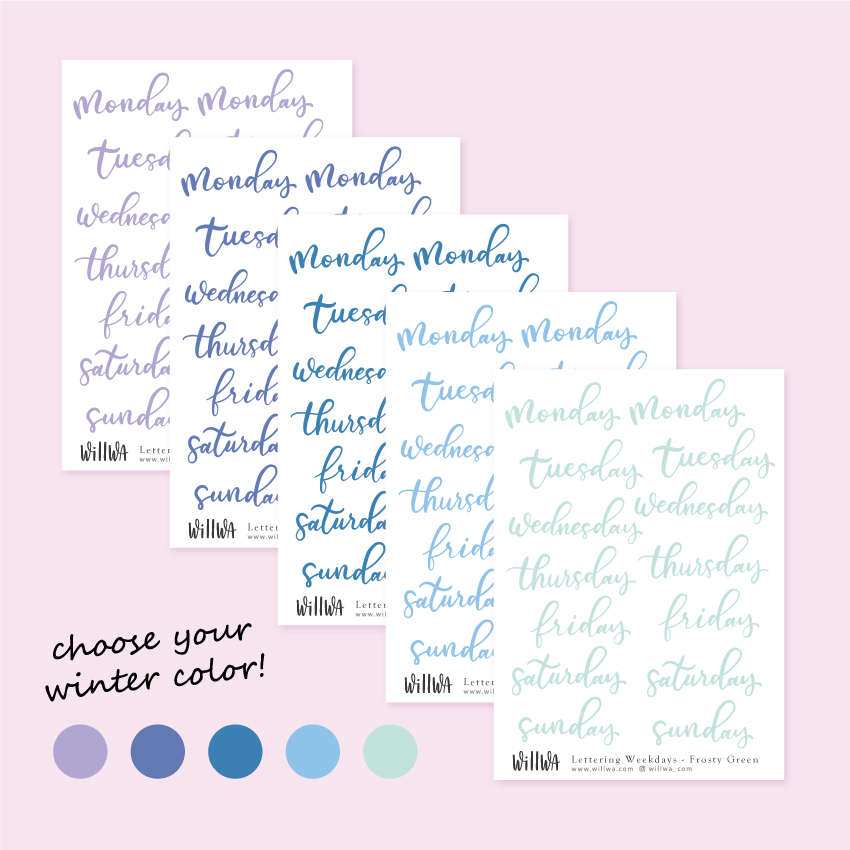 Monday Monday
tuesd
wednesda
thursd
frida
saturda
sunda
WillWA Lettering
www.willwa
Monday Monday
tuesd
wednesda
thursd
frida
saturda
sunda
WillWA Lettering
www.willwa
Monday Monday
tuesd
wednesda
thursd
frida
saturda
sunda
WillWA Lettering
www.willwa
Monday Monday
tuesd
wednesda
thursd
frida
saturda
sunda
WillWA Lettering
www.willwa
Monday Monday
tuesday tuesday
wednesday wednesday
thursday thursday
friday friday
saturday saturday
sunday sunday
WillWA Lettering Weekdays - Frosty Green
www.willwa.com willwa_com
choose your
winter color!